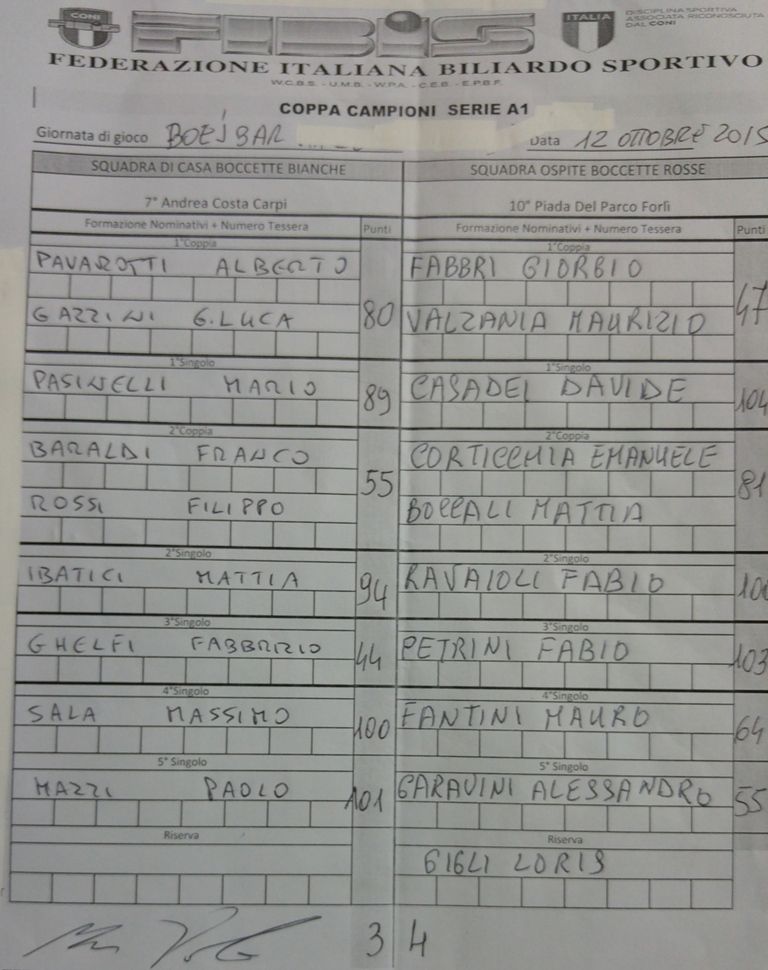 CONI
FIBiS
ITALIA
DISCIPLINA SPORTIVA
ASSOCIATA RICONOSCIUTA
DAL CONI
FEDERAZIONE ITALIANA BILIARDO SPORTIVO
W.C.B.S. - U.M.B. - W.P.A. - C.E.B. - E.P.B.F.
COPPA CAMPIONI SERIE A1
Giornata di gioco Data 12 OTTOBRE 2015
SQUADRA DI CASA BOCCETTE BIANCHE SQUADRA OSPITE BOCCETTE ROSSE
7° Andrea Costa Carpi 10° Piada Del Parco Forlì
Formazione Nominativi + Numero Tessera Punti Formazione Nominativi + Numero Tessera Punti
1°Coppia 1°Coppia
PAVAROTTI ALBERTO FABBRI GIORGIO
80 47
GAZZINI G.LUCA VALZANIA MAURIZIO
1°Singolo 1°Singolo
PASINELLI MARIO 89 CASADEI DAVIDE 104
2°Coppia 2°Coppia
BARALDI FRANCO CORTICCHIA EMANUELE
55 81
ROSSI FILIPPO BOCCALI MATTIA
2°Singolo 2°Singolo
IBATICI MATTIA 94 RAVAIOLI FABIO
3°Singolo 3°Singolo
GHELFI FABBRIZIO 44 PETRINI FABIO 103
4°Singolo 4°Singolo
SALA MASSIMO 100 FANTINI MAURO 64
5° Singolo 5° Singolo
MAZZI PAOLO 101 GARAVINI ALESSANDRO 55
Riserva Riserva
GIGLI LORIS
3 4